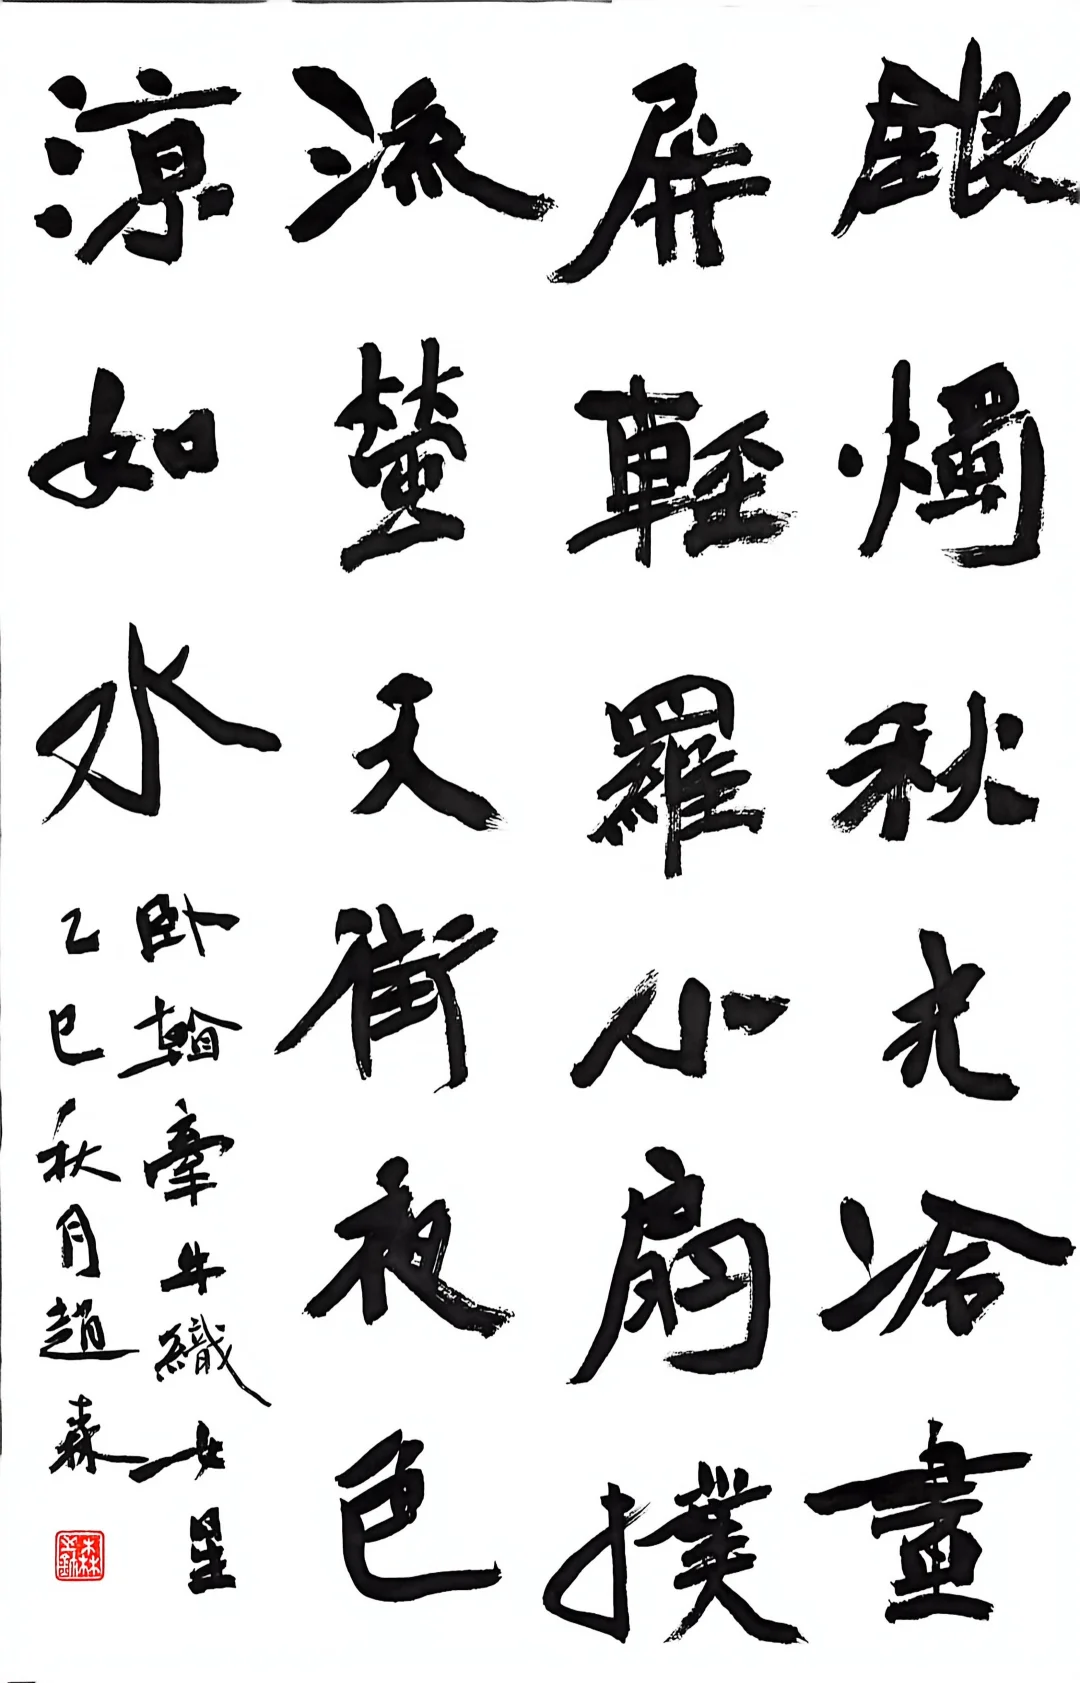 銀燭秋光冷畫
屏輕羅小扇撲
流螢天街夜色
涼如水
臥看牽牛織女星
乙巳秋月趙森